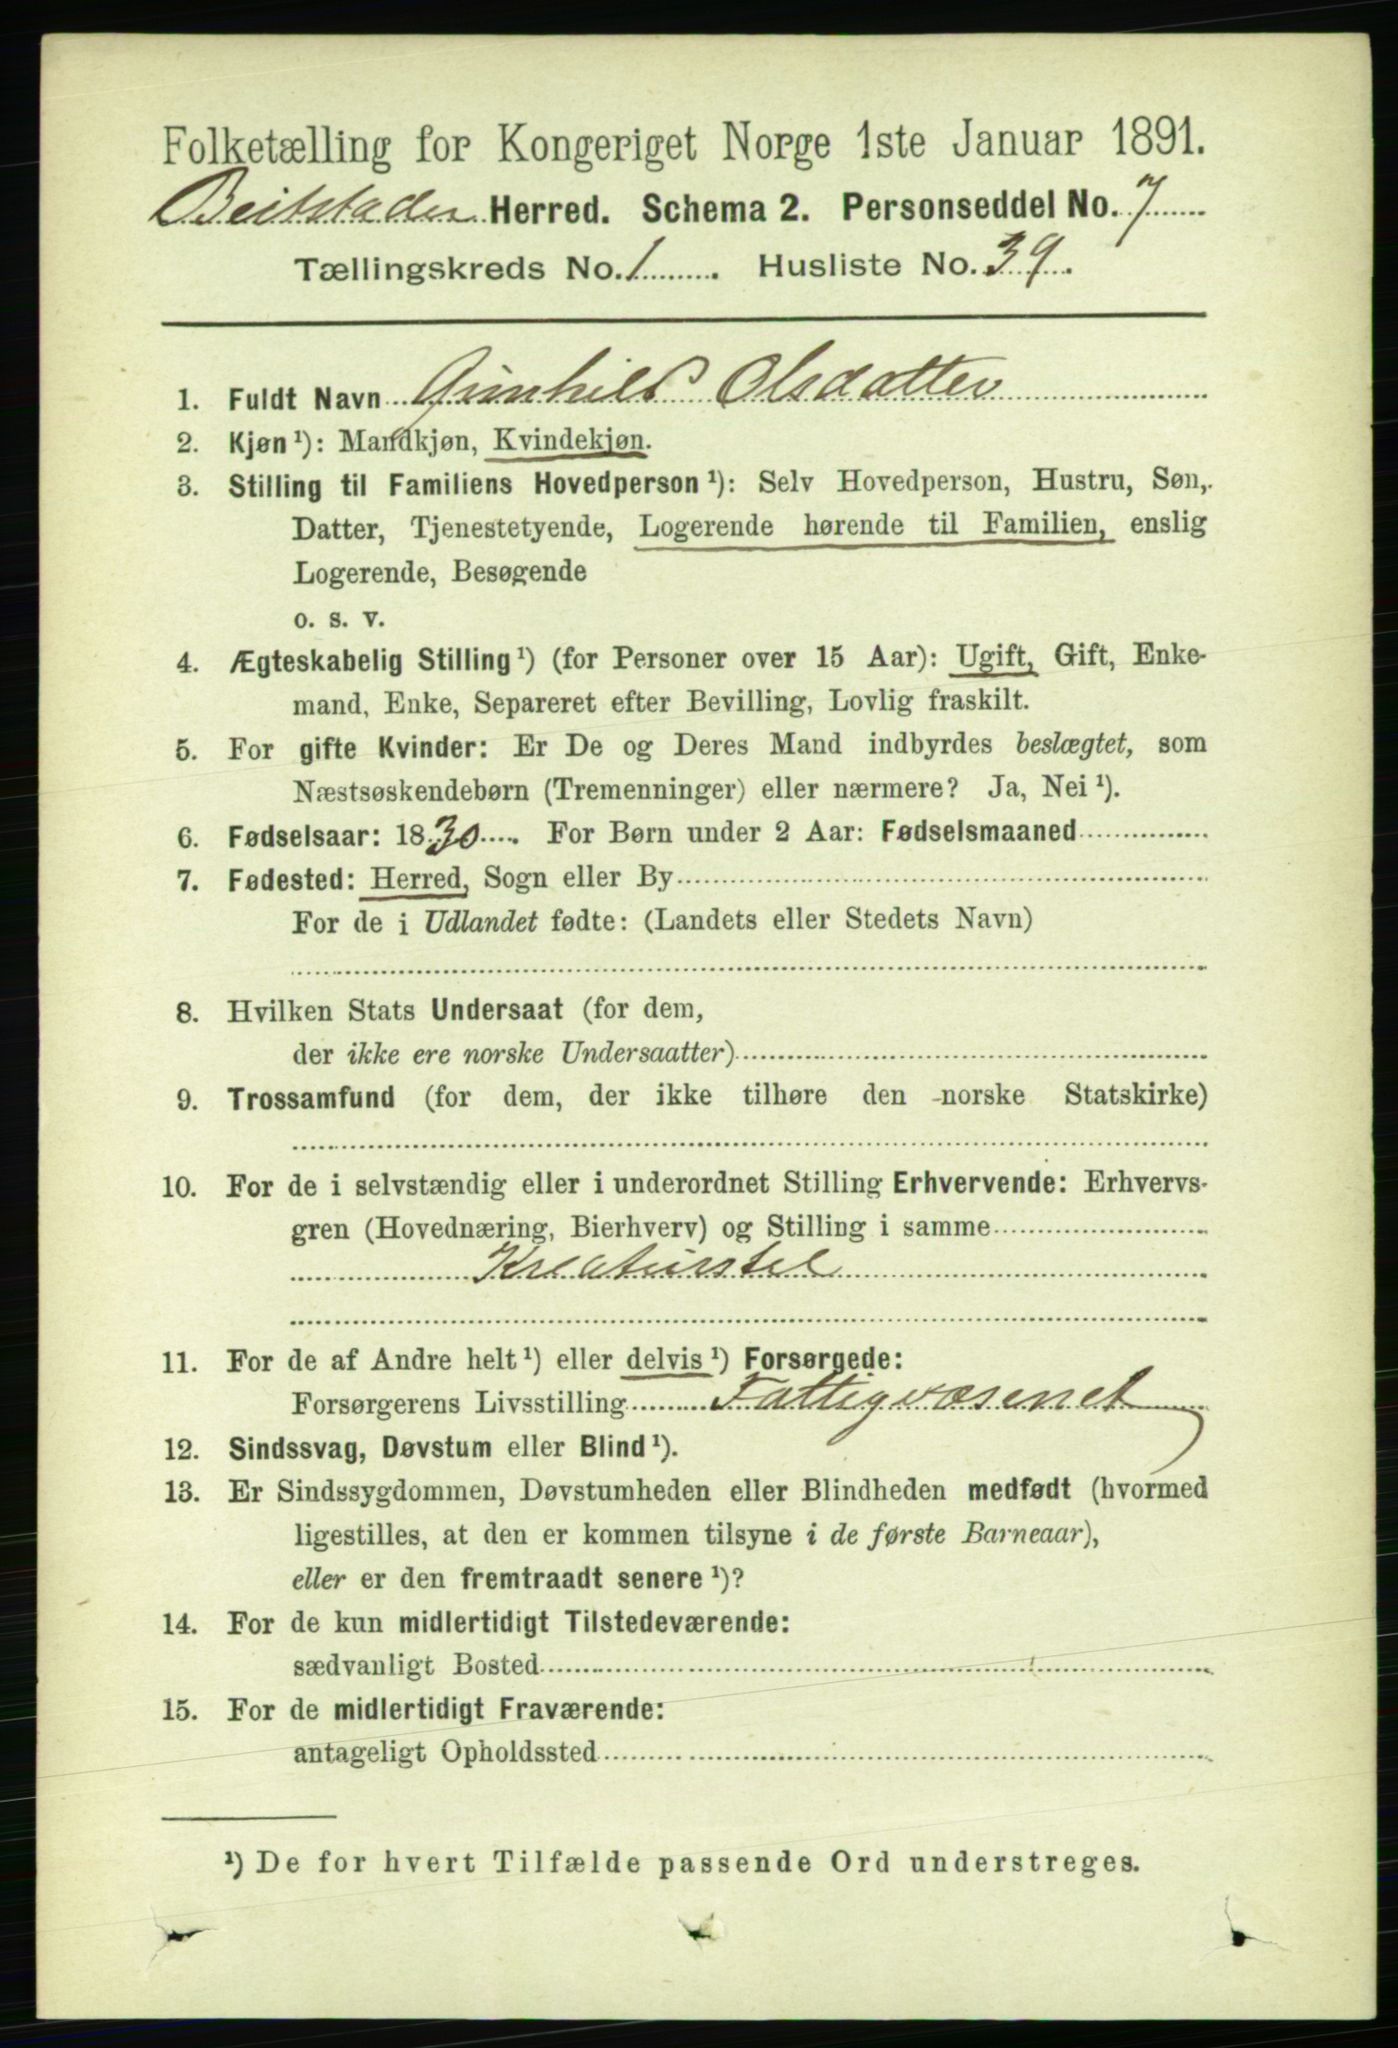 Folketælling for Kongeriget Norge 1ste Januar 1891.
Beitstaden Herred. Schema 2. Personseddel No. 7
Tællingskreds No. 1. Husliste No. 39.
1. Fuldt Navn Gunhild Olsdatter
2. Kjøn ¹): Mandkjøn, Kvindekjøn.
3. Stilling til Familiens Hovedperson ¹): Selv Hovedperson, Hustru, Søn,
Datter, Tjenestetyende, Logerende hørende til Familien, enslig
Logerende, Besøgende
o. s. v.
4. Ægteskabelig Stilling ¹) (for Personer over 15 Aar): Ugift, Gift, Enke-
mand, Enke, Separeret efter Bevilling, Lovlig fraskilt.
5. For gifte Kvinder: Er De og Deres Mand indbyrdes beslægtet, som
Næstsøskendebørn (Tremenninger) eller nærmere? Ja, Nei ¹).
6. Fødselsaar: 1830. For Børn under 2 Aar: Fødselsmaaned
7. Fødested: Herred, Sogn eller By
For de i Udlandet fødte: (Landets eller Stedets Navn)
8. Hvilken Stats Undersaat (for dem,
der ikke ere norske Undersaatter)
9. Trossamfund (for dem, der ikke tilhøre den norske Statskirke)
10. For de i selvstændig eller i underordnet Stilling Erhvervende: Erhvervs-
gren (Hovednæring, Bierhverv) og Stilling i samme
Kreaturstel
11. For de af Andre helt ¹) eller delvis ¹) Forsørgede:
Forsørgerens Livsstilling Fattigvæsenet
12. Sindssvag, Døvstum eller Blind ¹).
13. Er Sindssygdommen, Døvstumheden eller Blindheden medfødt (hvormed
ligestilles, at den er kommen tilsyne i de første Barneaar),
eller er den fremtraadt senere ¹)?
14. For de kun midlertidigt Tilstedeværende:
sædvanligt Bosted
15. For de midlertidigt Fraværende:
antageligt Opholdssted
¹) De for hvert Tilfælde passende Ord understreges.